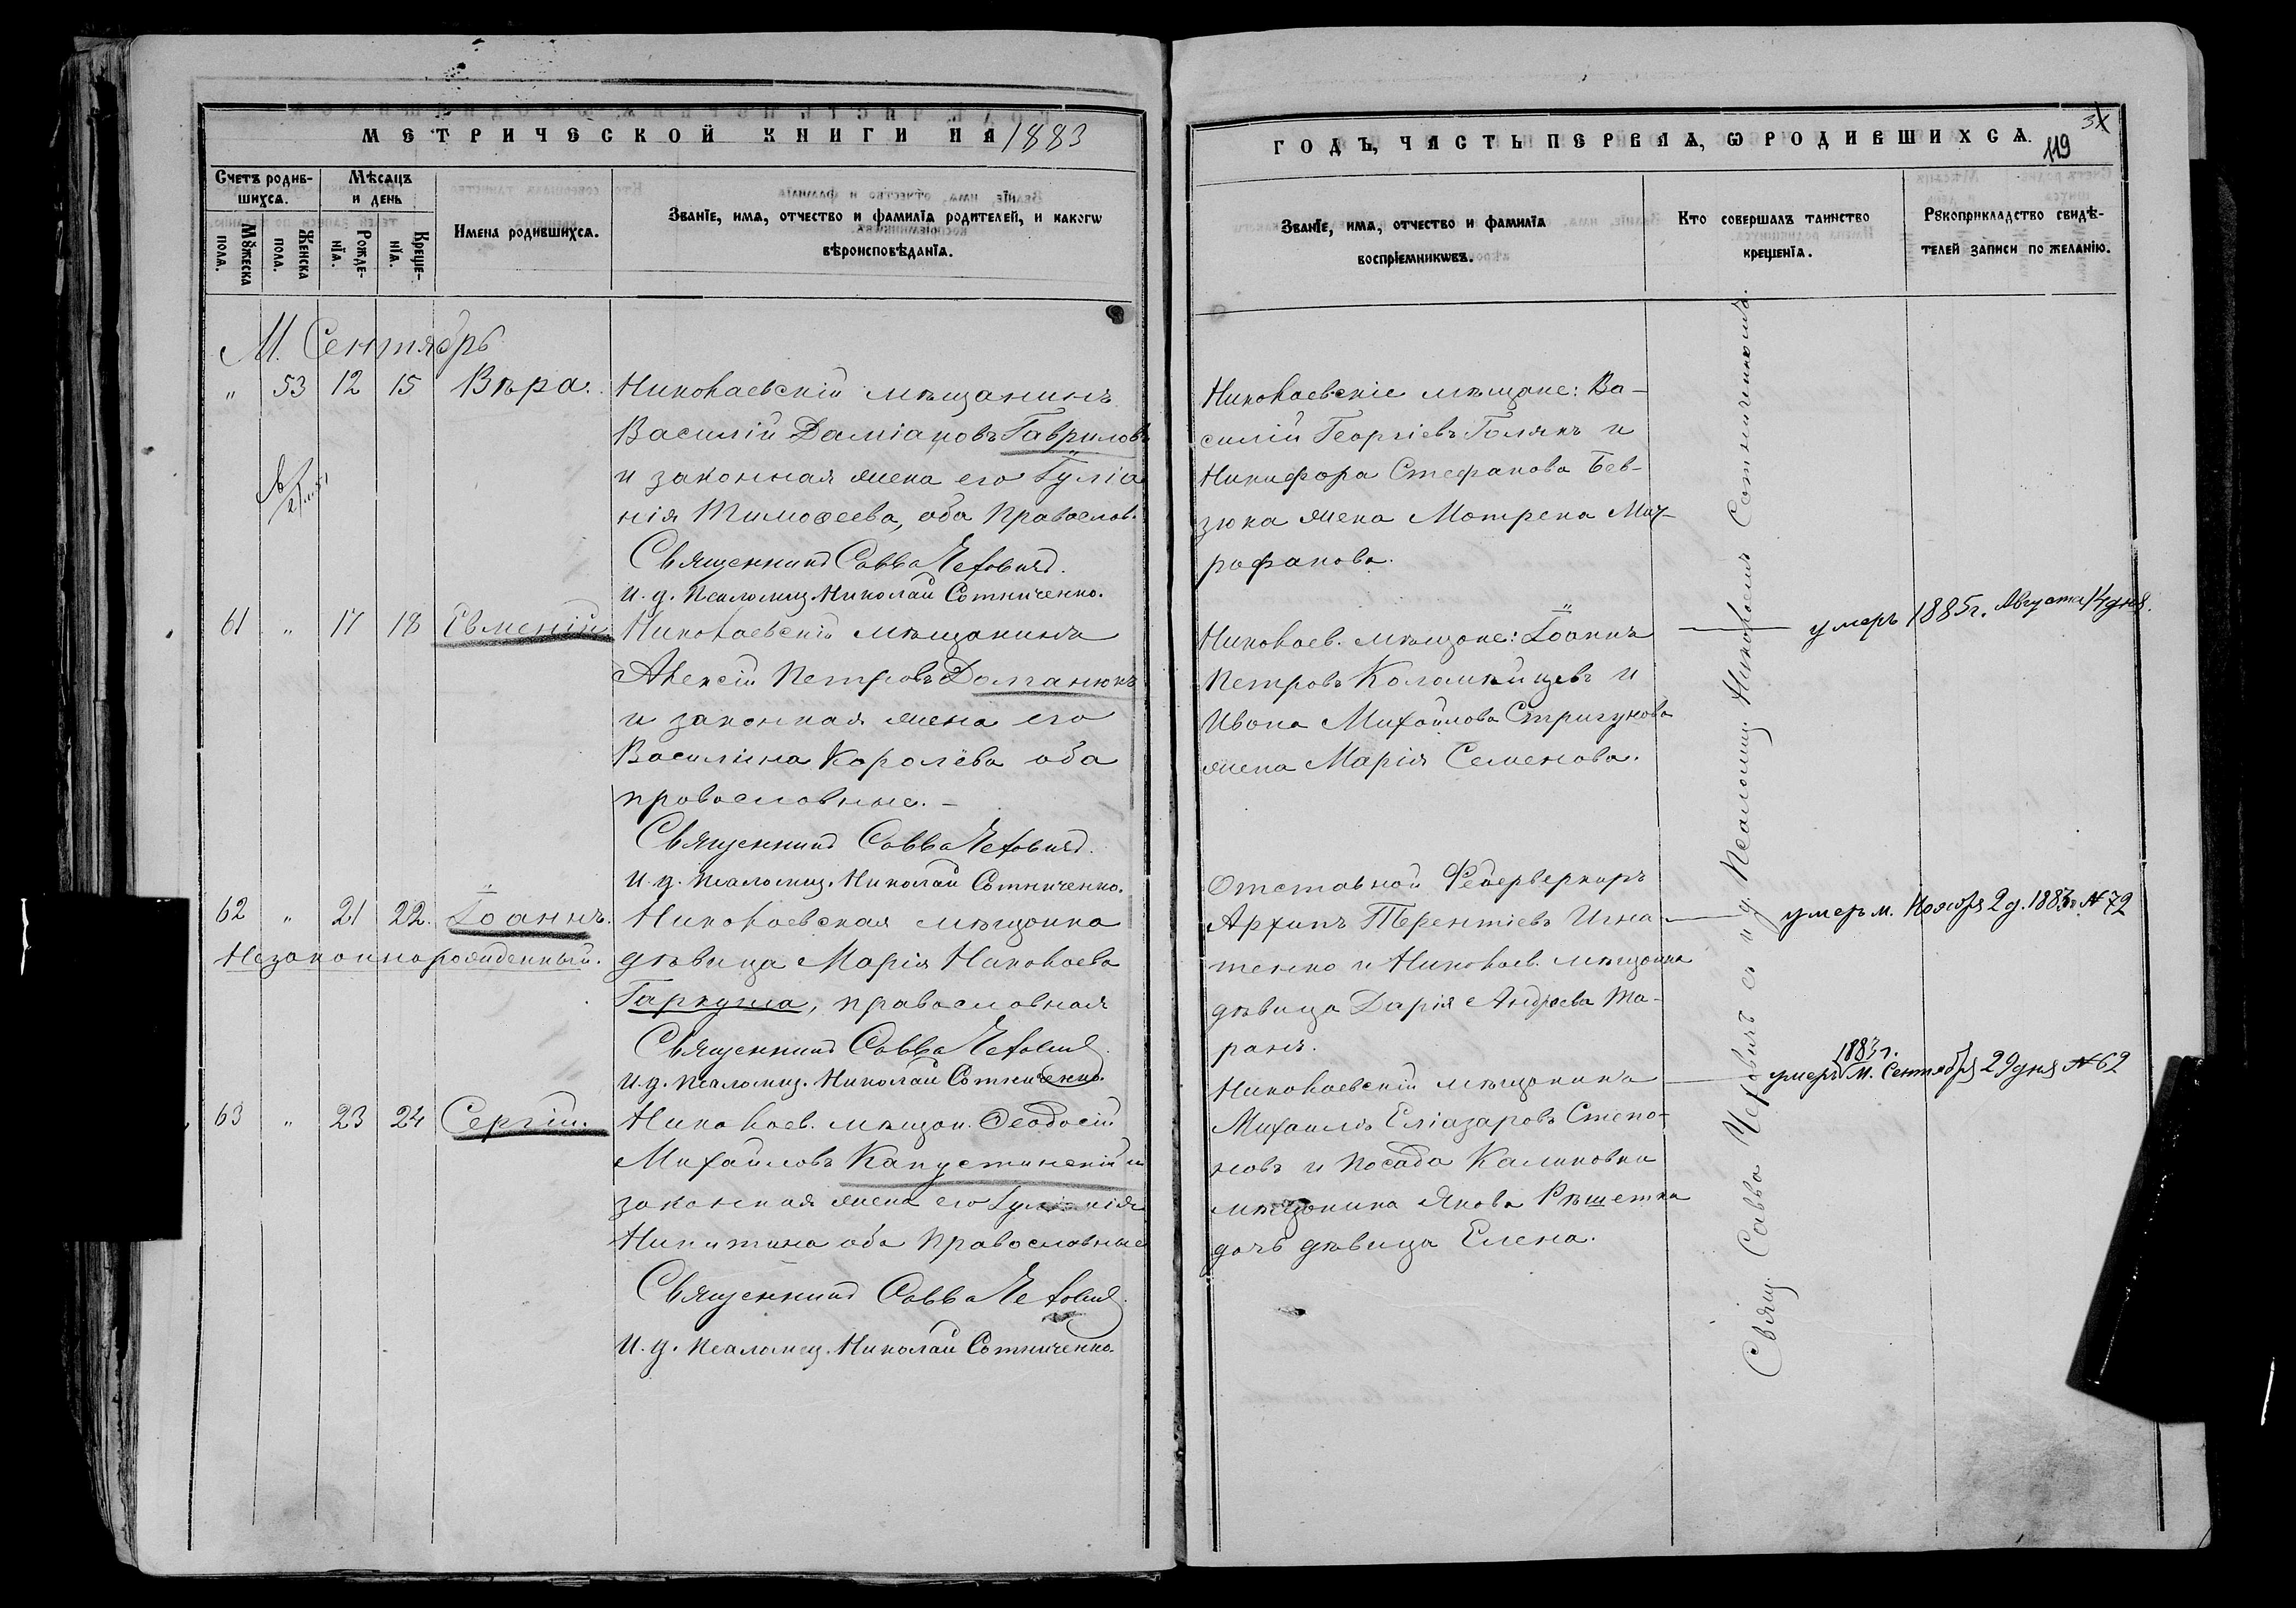 МЕТРИЧЕСКОЙ КНИГИ НА 1883
Счетъ родив-
шихся.
Мѣсяцъ
и день
Мꙋжеска
пола.
Женска
пола.
Рожде-
нїя.
Креще-
нїя.
Имена родившихся.
Званїе, имя, отчество и фамилїя родителей, и какогѡ
вѣроисповѣданїя.
М. Сентябрь
„ 53 12 15 Вѣра.
Николаевскій мѣщанинъ
Василій Даміановъ Гавриловъ
и законная жена его Іуліа
нія Тимоѳеева, оба Православ.
Священникъ Савва Чеховичъ.
И. д. Псаломщ. Николай Сотниченко.
61 „ 17 18 Евменій
Николаевскій мѣщанинъ
Алексій Петровъ Долганюкъ
и законная жена его
Василина Королёва оба
православные. –
Священникъ Савва Чеховичъ.
И. д. Псаломщ. Николай Сотниченко.
62 „ 21 22. Іоаннъ.
Незаконнорожденный.
Николаевская мѣщанка
дѣвица Марія Николаева
Гаркуша, православная
Священникъ Савва Чеховичъ.
И. д. Псаломщ. Николай Сотниченко.
63 „ 23 24 Сергій.
Николаев. мѣщан. Ѳеодосій
Михайловъ Капустинскій и
законная жена его Іуліанія
Никитина оба Православные
Священникъ Савва Чеховичъ.
И. д. Псаломщ. Николай Сотниченко.
ГОДЪ, ЧАСТЬ ПЕРВАЯ, Ѡ РОДИВШИХСѦ.
119
Званїе, имя, отчество и фамилїя
воспрїемникѡвъ.
Кто совершалъ таинство
крещенїя.
Рꙋкоприкладство свидѣ-
телей записи по желанїю.
Николаевскіе мѣщане: Ва-
силій Георгіевъ Голякъ и
Никифора Стефанова Бев-
зюка жена Мотрена Мит-
рофанова.
Николаев. мѣщане: Іоаннъ
Петровъ Коломыйцевъ и
Ивана Михайлова Стригунова
жена Марія Семенова.
умеръ 1885 г. Августа 14 дня.
Отставной Фейерверкиръ
Архипъ Терентіевъ Игна-
тенко и Николаев. мѣщанка
дѣвица Дарія Андреева Та-
ранъ.
умеръ м. Ноября 2 д. 1883 г. № 72
Николаевскій мѣщанинъ
Михаилъ Еліазаровъ Степа-
новъ и посада Калиновки
мѣщанина Якова Рѣшетка
дочь дѣвица Елена.
1883 г.
умеръ м. Сентября 29 дня № 62
Свящ. Савва Чеховичъ съ и д Псаломщ. Николаемъ Сотниченкомъ.